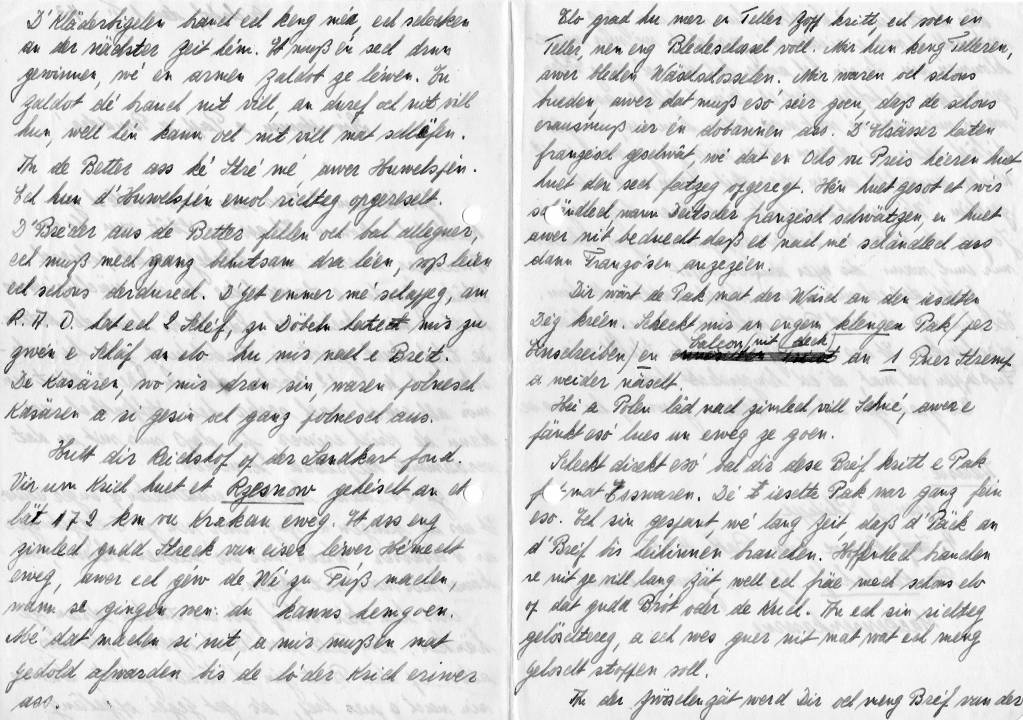 D'Kläderbigelen brauch ech keng méi, ech schecken
an der nächster Zeit hém. Et muß én sech drun
gewinnen, wé en armen Zaldot ze léwen. En
Zaldot dé brauch nit vill, an duref och nit vill
hun, well hén kann och nit vill mat schléfen.
An de Better ass ké Stré mé awer Houwelspén.
Ech hun d'Houwelspén emol richteg opgereselt.
D'Brieder aus de Better fellen och bal alleguer,
ech muß mech ganz behutsam dra léen, soß leien
ech schons derdurech. D'get emmer mé schappeg, am
R.A.D. hat ech 2 Schléf, zu Döbeln hate mis zu
zwén e Schlof an elo hu mis noch e Briet.
De Kasären, wó mis dran sin, waren polnesch
Kasären a si gesin och ganz polnesch aus.
Hutt dir Reichshof op der Landkart fond.
Virum Krich huet et Rzesnow gehéscht an et
läit 172 km vu Krakau eweg. Et ass eng
zimlech gudd Streck vun eiser léwer Hémecht
eweg, awer ech gew de Wé zu Fúß machen,
wann se gingen wen: du kanns hemgoen.
Mé dat machen si nit, a mis mußen mat
Gedold ofwarden bis de lo der Krich eriwer
ass.
Elo grad hu mer en Teller Zopp kritt, ech soen en
Teller, nen eng Blechschossel voll. Mir hun keng Telleren,
awer bleden Wäschschosselen. Mir waren och schons
bueden, awer dat muß esó séier goen, daß de schons
erausmuß ier én dobannen ass. D'Elsässer haten
franzésch geschwat, wé dat en Ochs vu Preis héieren huet,
huet den sech fatzeg opgeregt. Hén huet gesot et wir
schändlech wann Deitscher franzésch schwätzen, en huet
awer nit beduecht daß et nach mé schändlech ass
dann Franzósen anzezéen.
Dir wärt de Pak mat der Wäsch an den ieschten
Deg kréen. Scheckt mis an engem klengen Pak/per
Einschreiben/en Falcon/nit deck/ an 1 Puer Stremp
a weider näischt.
Hei a Polen läd nach zimlech vill Schné, awer e
fänkt esó lues un eweg ze goen.
Scheckt direkt esó bal dir dese Bréf kritt e Pak
mat Esswaren. Dé ieschte Pak war ganz fein
eso. Ech sin gespant, wé lang Zeit daß d'Päck an
d'Bréf bis heihinnen brauchen. Hoffentlech brauchen
se nit ze vill lang Zät, well ech fräe mech schons elo
op dat gudd Brót oder de Kuch. An ech sin richteg
geloschtereg, a ech wes guer nit mat wat ech meng
Geloscht stoppen soll.
An der Zwöschenzät werd Dir och meng Bréf van der